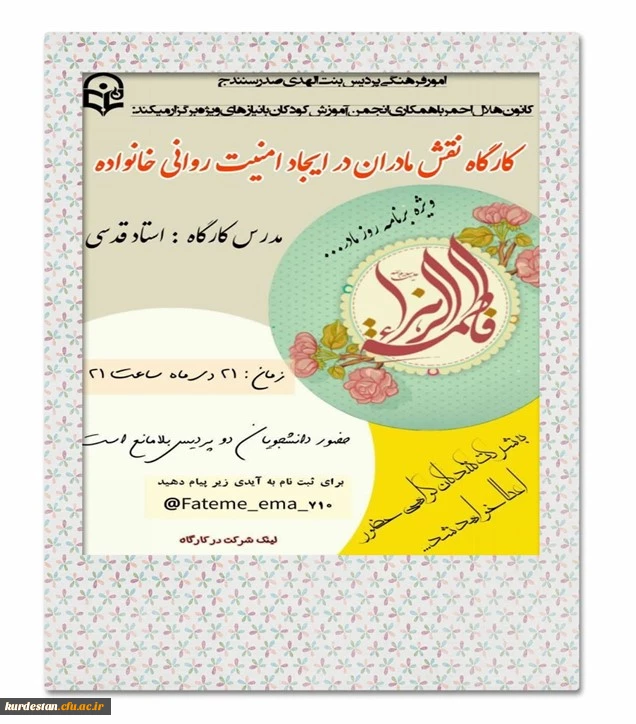 امور فرهنگی پردیس بنت الهدی صدر سنندج
کانون هلال احمر با همکاری انجمن آموزش کودکان با نیازهای ویژه برگزار میکند:
کارگاه نقش مادران در ایجاد امنیت روانی خانواده
ویژه برنامه روز مادر...
مدرس کارگاه : استاد قدسی
فاطمة الزهراء
زمان : ۲۱ دی ماه ساعت ۲۱
حضور دانشجویان دو پردیس بلامانع است
برای ثبت نام به آیدی زیر پیام دهید
@Fateme_ema_۷۱۰
لینک شرکت در کارگاه
به شرکت کنندگان گرامی حضور
اعطا خواهد شد...
kurdestan.cfu.ac.ir